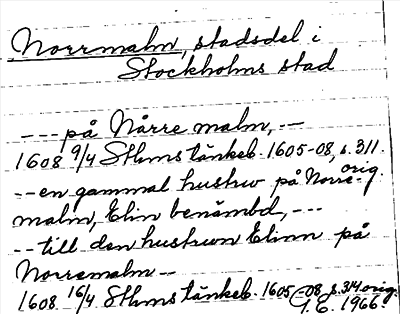 Norrmalm, stadsdel i
Stockholms stad
--- på Nårre malm, --
1608 9/4 Sthms tänkeb. 1605-08, s. 311.
orig.
-- en gammal hustrw på Norre-
malm, Elin benämbd, ---
-- till den hustrwn Elinn på
Norremalm --
1608 16/4 Sthms tänkeb. 1605-08, s. 314 orig.
G. E. 1966.